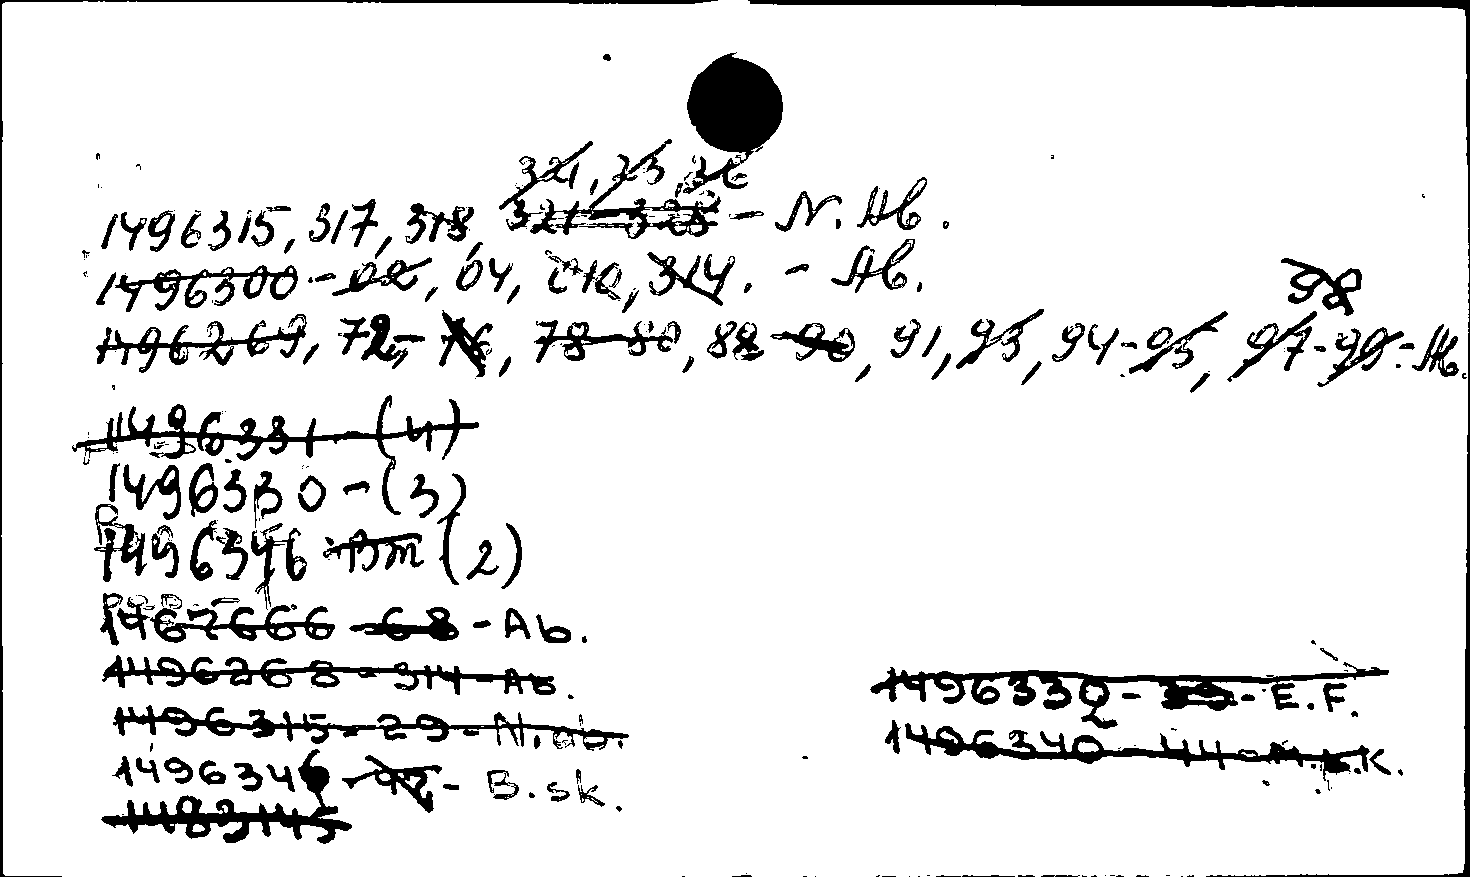 321, 23 26
1496315, 317, 318, 321-328 - N. Ab.
1496300-02, 04, 010, 314. - Ab.
98
1496269, 72-76, 78-80, 88-90, 91, 93, 94-95, 97-99.-Ab.
1496331-(4)
1496330-(3)
1496346 (2)
1467666-68-Ab.
1496268-314-Ab.
1496315-29-N.ab.
1496346-47-B.sk.
1483145
1496332-39-E.F.
1496340-44-M.K.